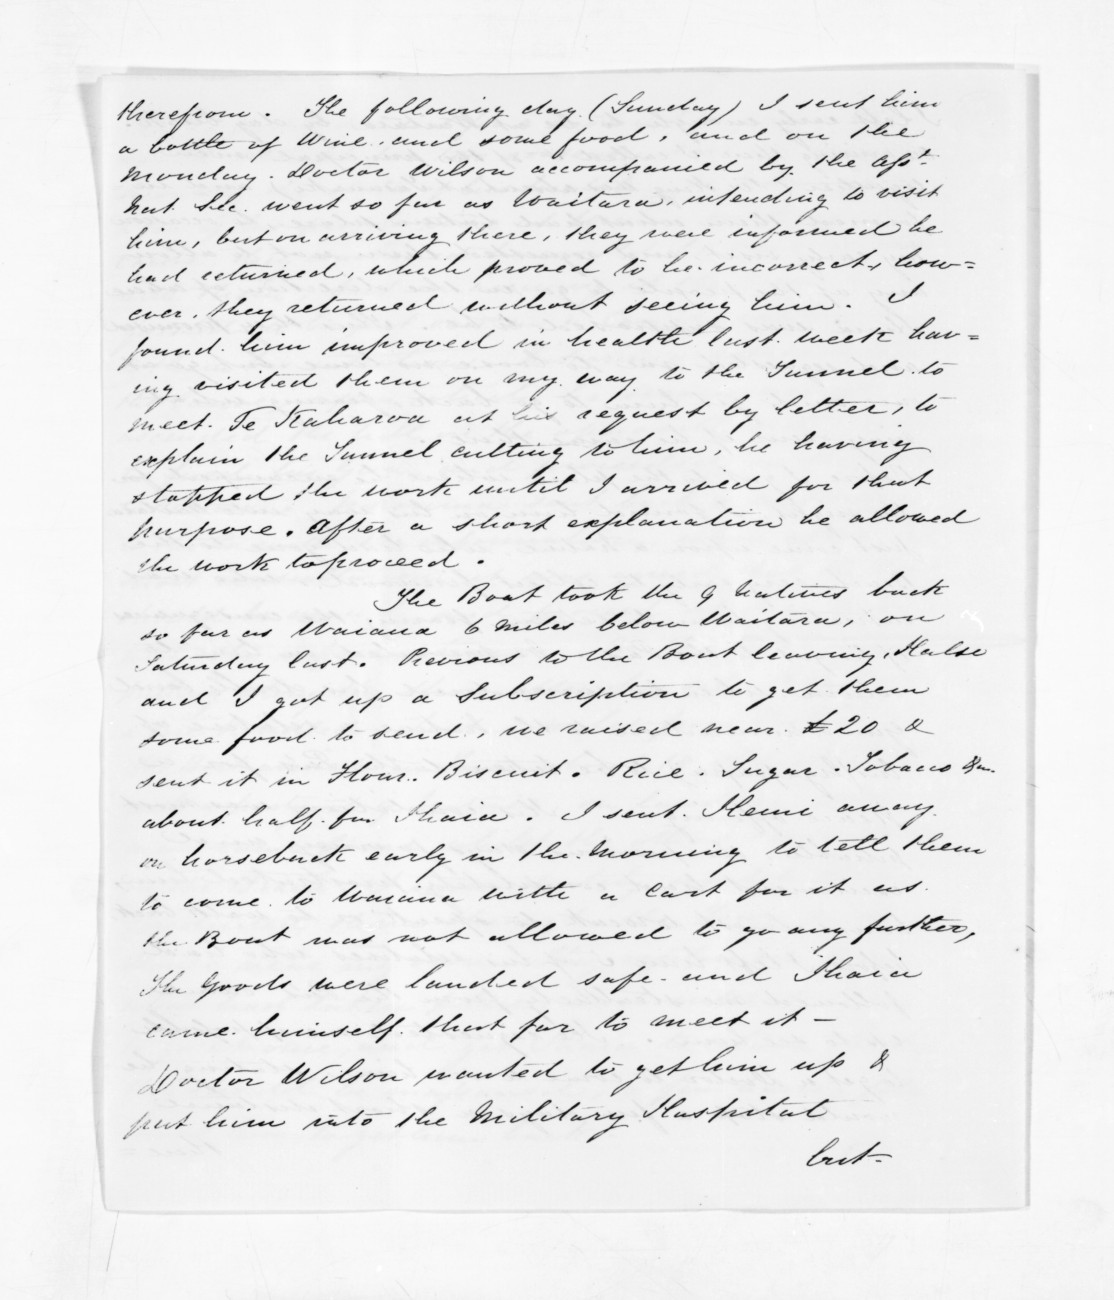 therefrom. The following day (Sunday) I sent him
a bottle of Wine, and some food, and on the
Monday. Doctor Wilson accompanied by the Asst.
Nat Sec. went so far as Waitara, intending to visit
him, but on arriving there, they were informed he
had returned, which proved to be incorrect, how=
ever, they returned without seeing him. I
found him improved in health last week hav=
ing visited them on my way to the Tunnel to
meet Te Kaharoa at his request by letter, to
explain the Tunnel cutting to him, he having
stopped the work until I arrived for that
purpose. After a short explanation he allowed
the work to proceed.
The Boat took the 9 Natives back
so far as Waiana 6 miles below Waitara, on
Saturday last. Previous to the Boat leaving, Halse
and I got up a Subscription to get them
some food to send, we raised near £20 &
sent it in Flour. Biscuit. Rice. Sugar. Tobacco &c.
about half for Ihaia. I sent Hemi away
on horseback early in the morning to tell them
to come to Waiana with a Cart for it as
the Boat was not allowed to go any further,
The Goods were landed safe and Ihaia
came himself that far to meet it —
Doctor Wilson wanted to get him up &
put him into the Military Hospital
but-